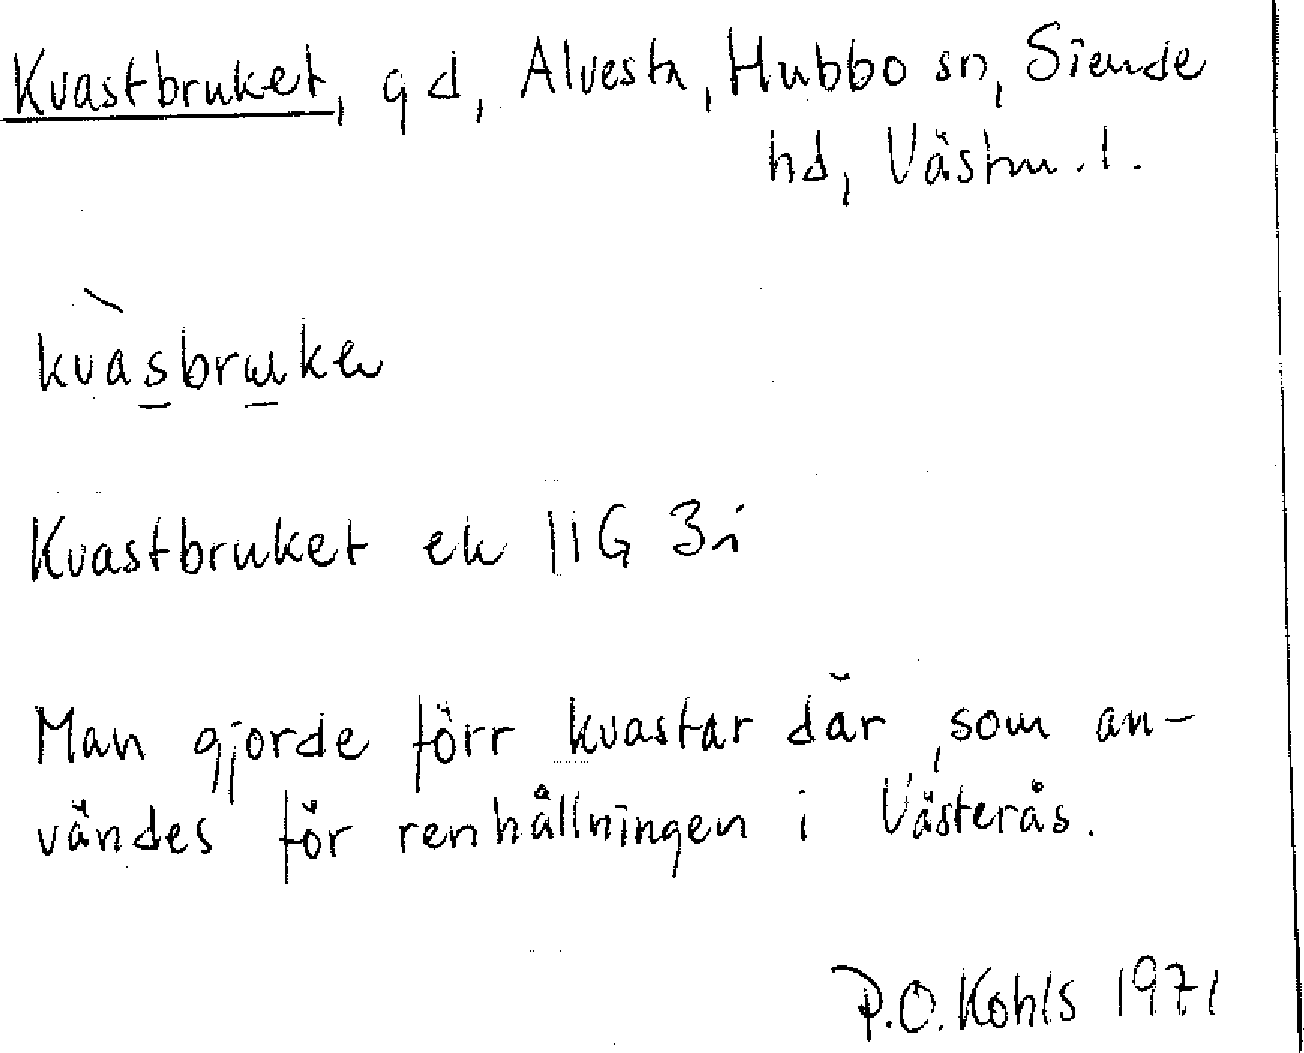 Kvastbruket, gd, Alvesta, Hubbo sn, Siende
hd, Västm. l.
kvàsbruken
Kvastbruket ek 11G 3i
Man gjorde förr kvastar där, som an-
vändes för renhållningen i Västerås.
P.O. Kohls 1971